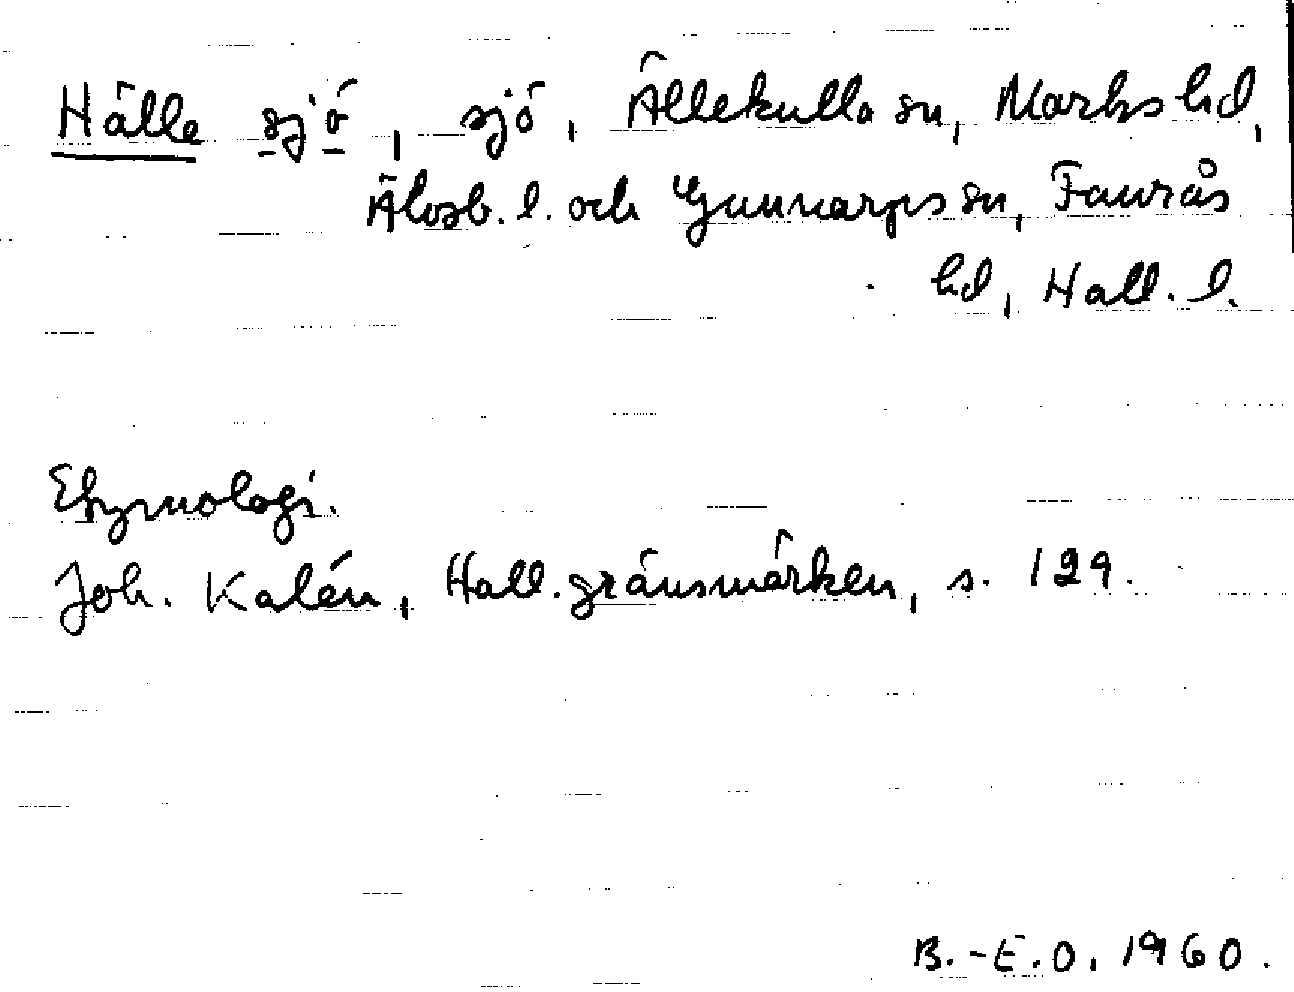 Hälle sjö, sjö, Ällekulla sn, Marks hd,
Älvsb. l. och Gunnarps sn, Faurås
hd, Hall. l.
Etymologi.
Joh. Kalén, Hall. gränsmärken, s. 129.
B.-E.O. 1960.